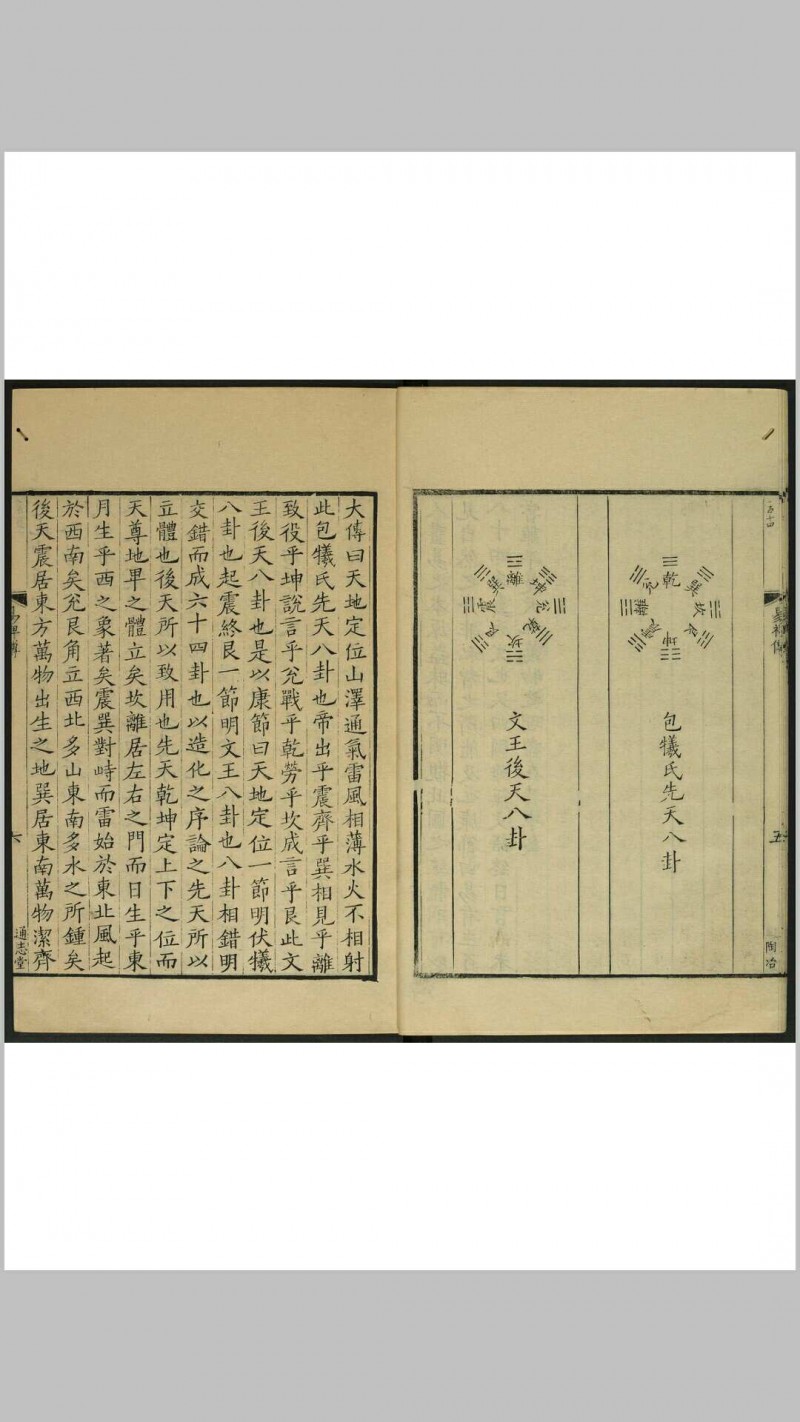 易裨傳
五
陶冶
乾
巽
坎
艮
坤
震
離
兌
包犧氏先天八卦
離
坤
兌
乾
坎
艮
震
巽
文王後天八卦
大傳曰天地定位山澤通氣雷風相薄水火不相射
此包犧氏先天八卦也帝出乎震齊乎巽相見乎離
致役乎坤說言乎兌戰乎乾勞乎坎成言乎艮此文
王後天八卦也是以康節曰天地定位一節明伏犧
八卦也起震終艮一節明文王八卦也八卦相錯明
交錯而成六十四卦也以造化之序論之先天所以
立體也後天所以致用也先天乾坤定上下之位而
天尊地卑之體立矣坎離居左右之門而日生乎東
月生乎西之象著矣震巽對峙而雷始於東北風起
於西南矣兌艮角立西北多山東南多水之所鍾矣
後天震居東方萬物出生之地巽居東南萬物潔齊
易裨傳
六
通志堂